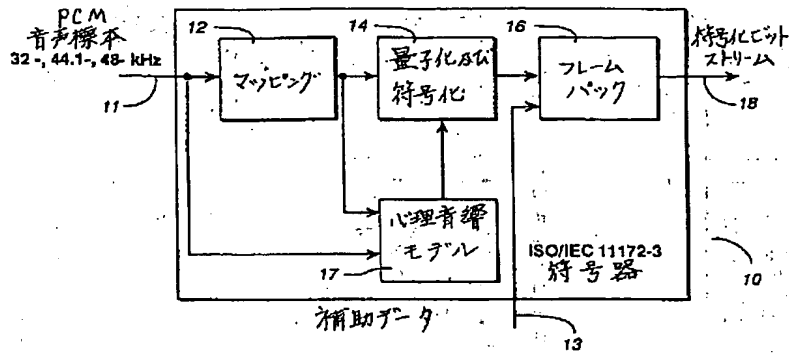 PCM
音声標本
32-, 44.1-, 48- kHz
11
12
マッピング
14
量子化及び
符号化
16
フレーム
パック
符号化ビット
ストリーム
18
心理音響
モデル
17
ISO/IEC 11172-3
符号器
10
補助データ
13